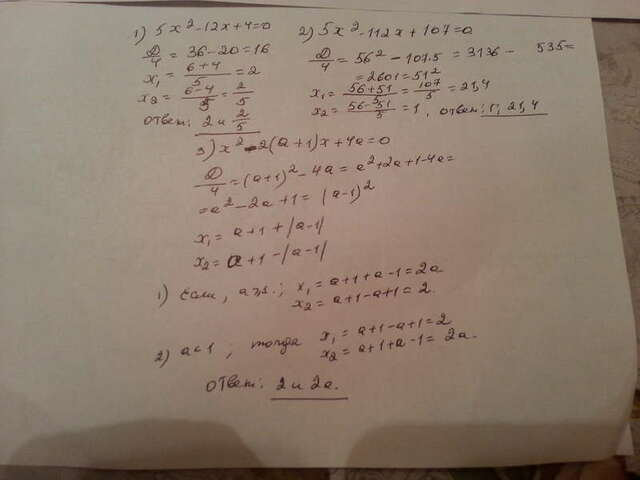 1) 5x²-12x+4=0
D/4 = 36-20=16
x₁ = (6+4)/5 = 2
x₂ = (6-4)/5 = 2/5
ответ: 2 и 2/5
2) 5x²-112x+107=0
D/4 = 56²-107·5 = 3136 - 535=
=2601=51²
x₁ = (56+51)/5 = 107/5 = 21,4
x₂ = (56-51)/5 = 1, ответ: 1; 21,4
3) x²-2(a+1)x+4a=0
D/4 = (a+1)²-4a = a²+2a+1-4a=
=a²-2a+1=(a-1)²
x₁ = a+1+|a-1|
x₂ = a+1-|a-1|
1) Если, a≥1; x₁=a+1+a-1=2a
x₂=a+1-a+1=2.
2) a<1; тогда x₁=a+1-a+1=2
x₂=a+1+a-1=2a.
ответ: 2 и 2a.